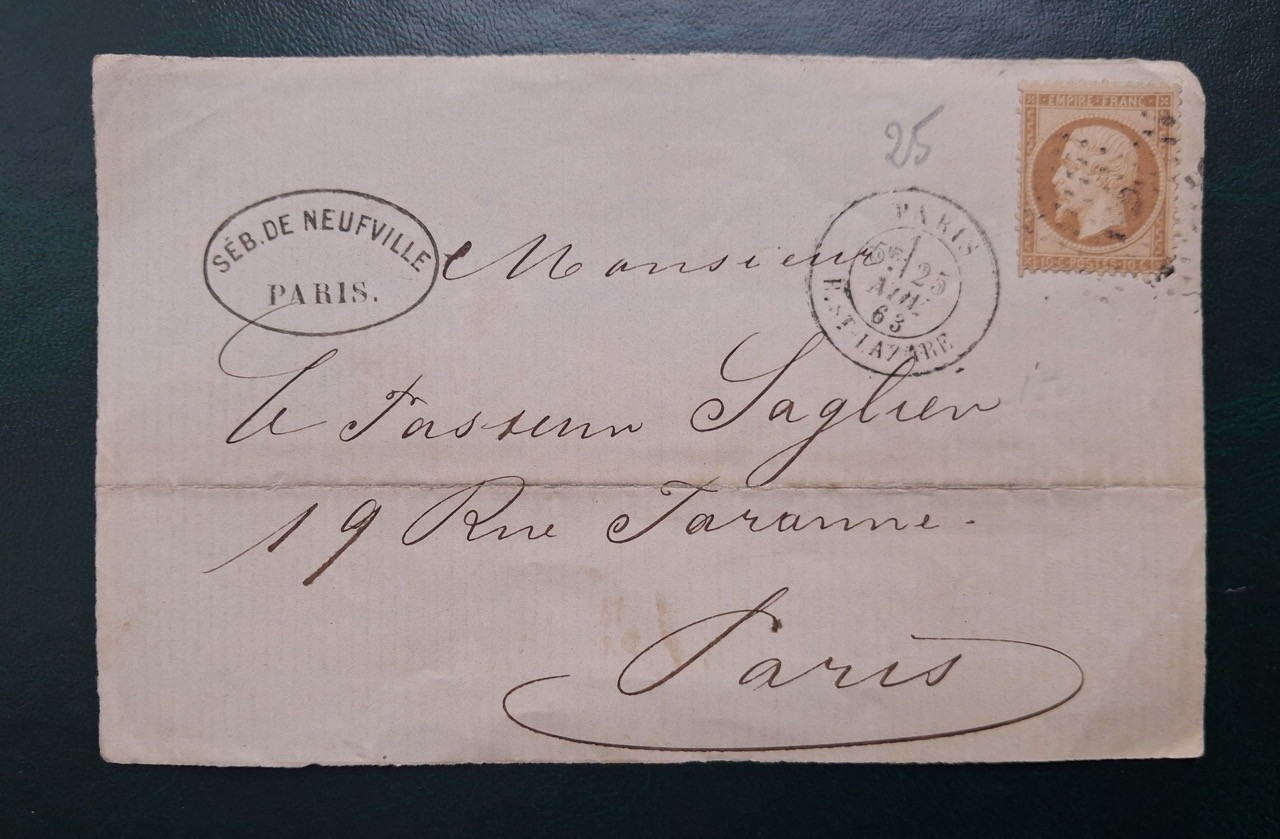 25
EMPIRE FRANC
10 C. POSTES 10 C.
SÉB. DE NEUFVILLE
PARIS.
PARIS
25
AOUT
63
R. ST-LAZARE
Monsieur
Le Vasseur Saglier
19 Rue Taranne.
Paris